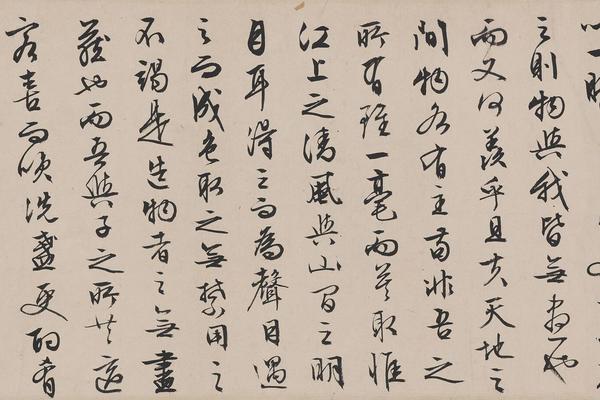 之則物與我皆無盡也
而又何羨乎且夫天地之
間物各有主苟非吾之
所有雖一毫而莫取惟
江上之清風與山間之明
月耳得之而為聲目遇
之而成色取之無禁用之
不竭是造物者之無盡
藏也而吾與子之所共適
客喜而咲洗盞更酌肴